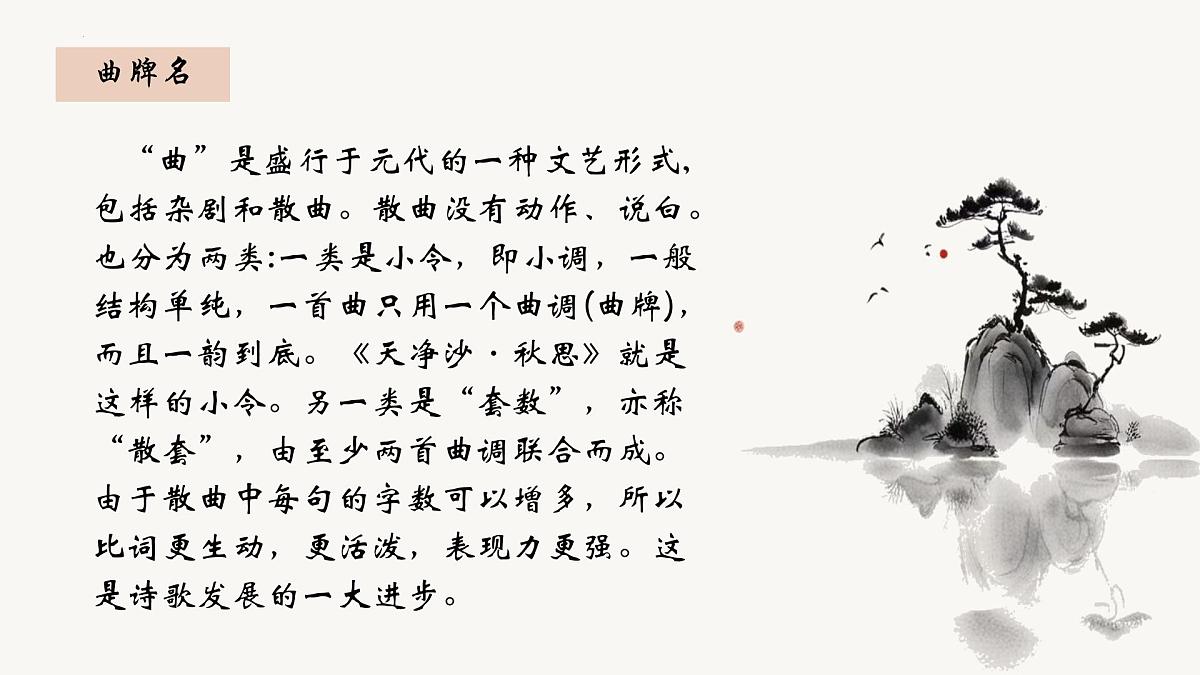 曲牌名
“曲”是盛行于元代的一种文艺形式,
包括杂剧和散曲。散曲没有动作、说白。
也分为两类:一类是小令，即小调，一般
结构单纯，一首曲只用一个曲调(曲牌)，
而且一韵到底。《天净沙·秋思》就是
这样的小令。另一类是“套数”，亦称
“散套”，由至少两首曲调联合而成。
由于散曲中每句的字数可以增多，所以
比词更生动，更活泼，表现力更强。这
是诗歌发展的一大进步。